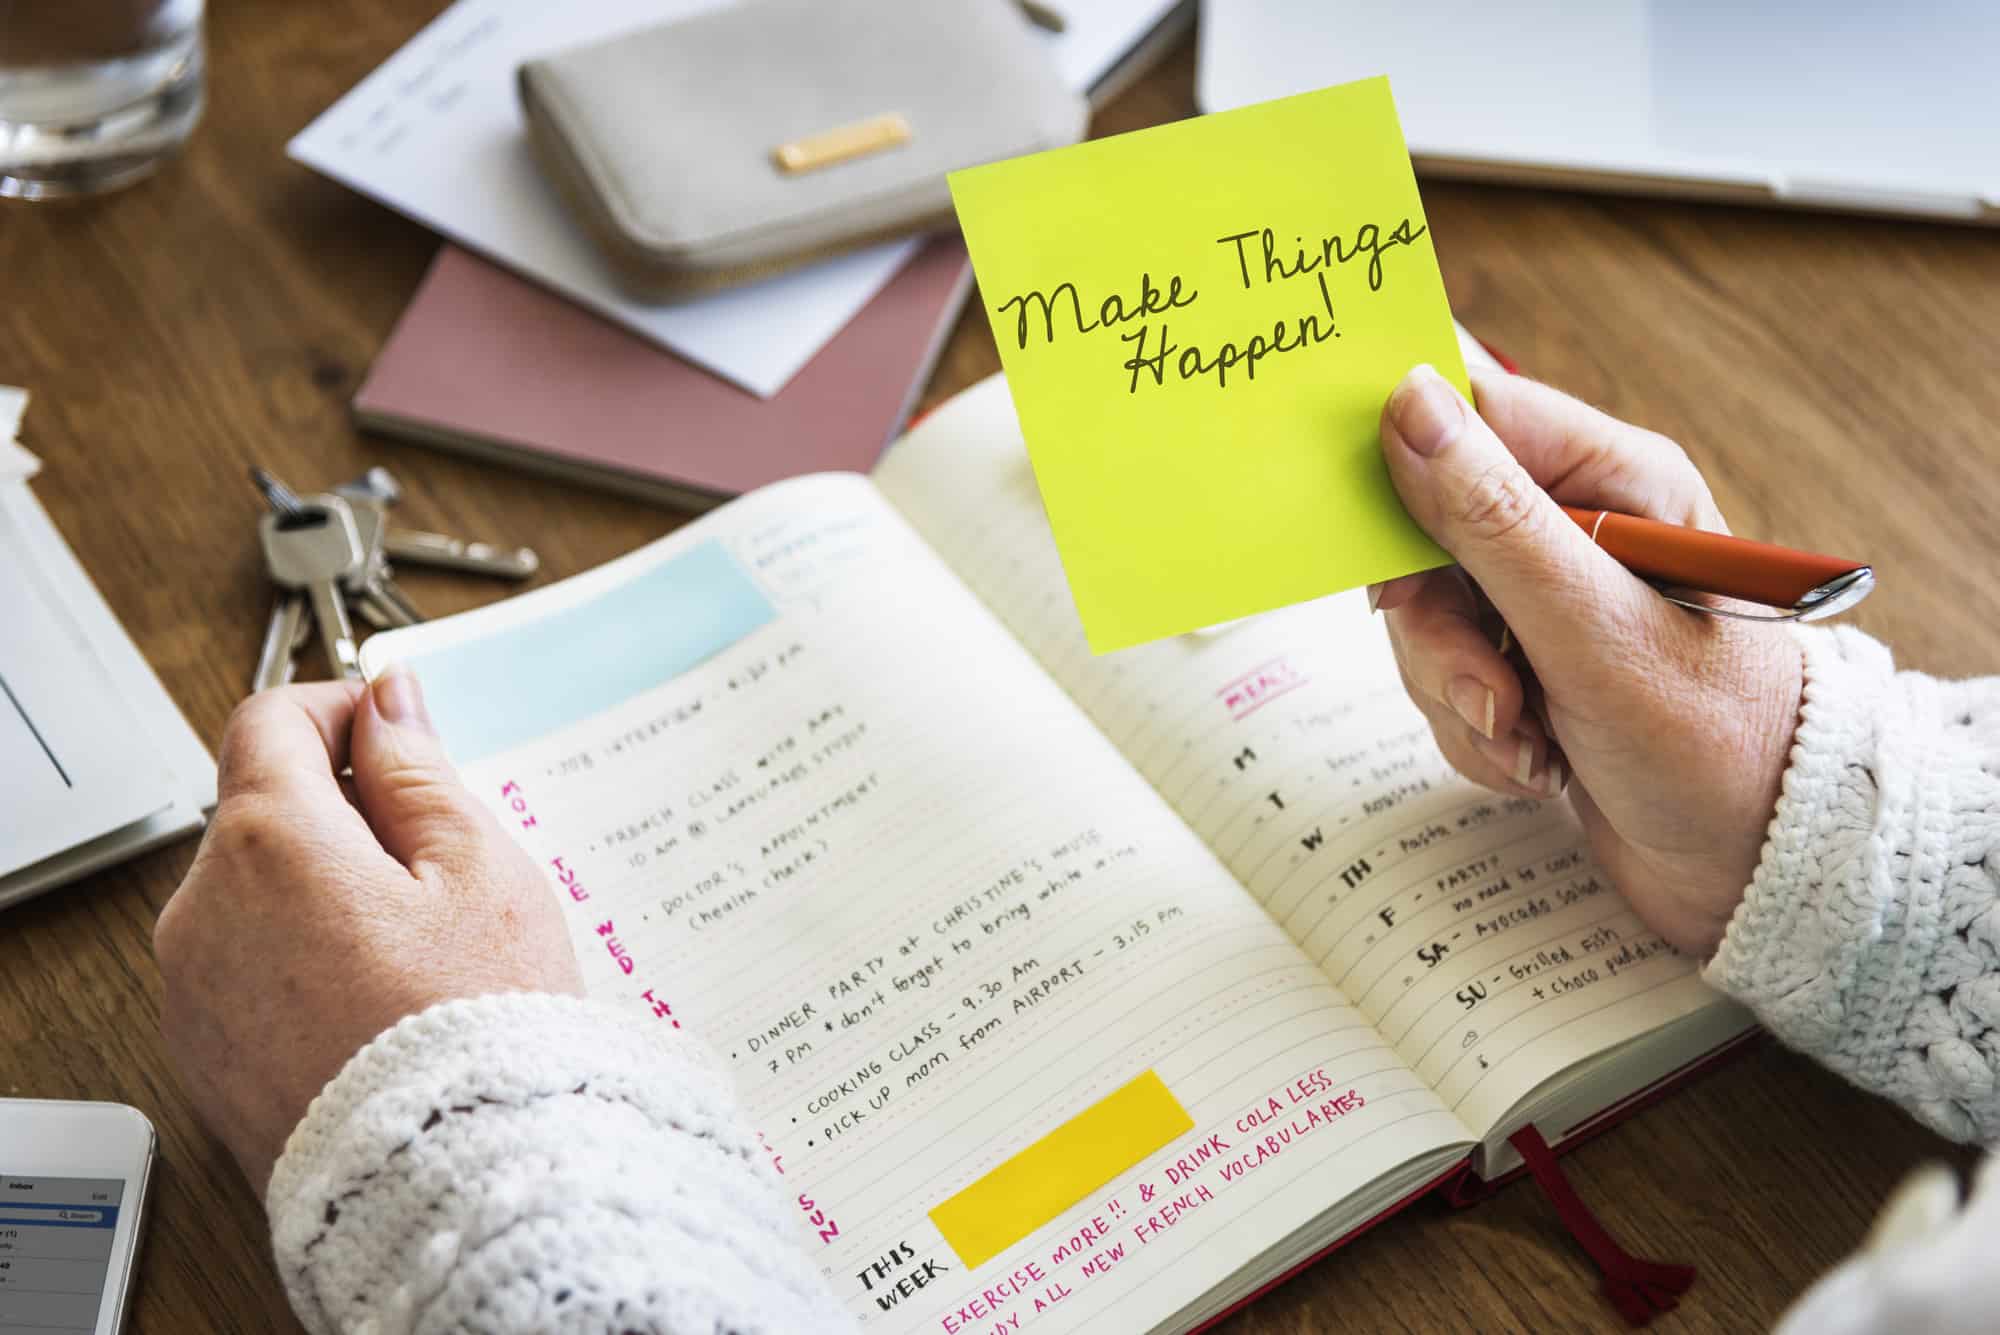 Make Things
Happen!
MON
TUE
WED
TH
SUN
• JOB INTERVIEW - 4.30 PM
• FRENCH CLASS WITH AMY
10 AM @ LANGUAGES STUDIO
• DOCTOR'S APPOINTMENT
(health check)
• DINNER PARTY at CHRISTINE'S HOUSE
7 PM * don't forget to bring white wine
• COOKING CLASS - 9.30 AM
• PICK UP mom from AIRPORT - 3.15 PM
THIS
WEEK
EXERCISE MORE!! & DRINK COLA LESS
ALL NEW FRENCH VOCABULARIES
MEALS
M -
T -
+
W - Roasted
TH - Pasta with
F - PARTY
no need to cook
SA - Avocado Salad
SU - Grilled Fish
+ choco pudding
Inbox
Edit
Search